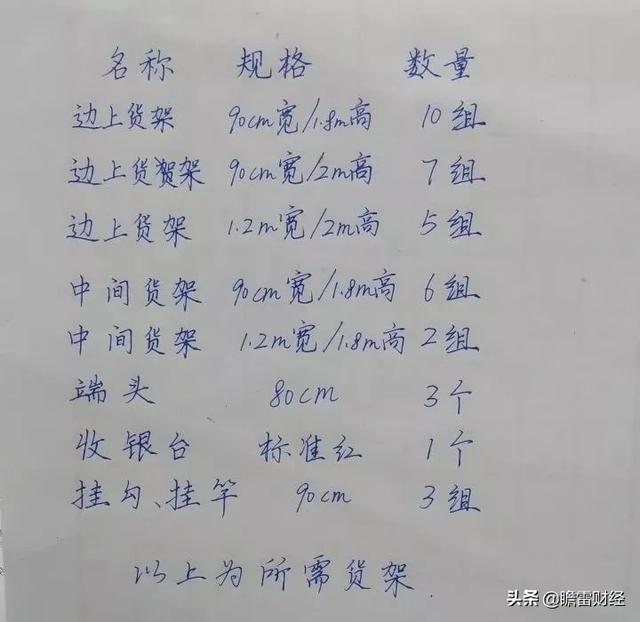 名称 规格 数量
边上货架 90cm宽/1.8m高 10组
边上货贺架 90cm宽/2m高 7组
边上货架 1.2m宽/2m高 5组
中间货架 90cm宽/1.8m高 6组
中间货架 1.2m宽/1.8m高 2组
端头 80cm 3个
收银台 标准红 1个
挂勾、挂竿 90cm 3组
以上为所需货架.
头条 @瞻雷财经